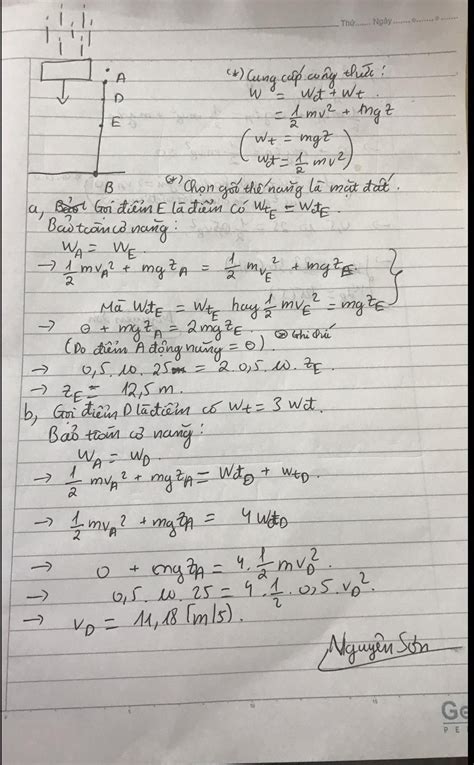 Thứ Ngày
A
D
E
B
(*) Cung cấp công thức:
W = Wđ + Wt.
= 1/2 mv² + mgz
(Wt = mgz
Wđ = 1/2 mv²)
(*) Chọn gốc thế năng là mặt đất.
a, Gọi điểm E là điểm có WtE = WđE.
Bảo toàn cơ năng:
WA = WE.
→ 1/2 mvA² + mgzA = 1/2 mvE² + mgzE.
Mà WđE = WtE hay 1/2 mvE² = mgzE
→ 0 + mgzA = 2mgzE. Ghi chú
(Do điểm A động năng = 0)
→ 0,5. 10. 25 = 2. 0,5. 10. zE.
→ zE = 12,5 m.
b, Gọi điểm D là điểm có Wt = 3 Wđ.
Bảo toàn cơ năng:
WA = WD.
→ 1/2 mvA² + mgzA = WđD + WtD.
→ 1/2 mvA² + mgzA = 4WđD
→ 0 + mgzA = 4. 1/2 mvD².
→ 0,5. 10. 25 = 4. 1/2. 0,5. vD².
→ vD = 11,18 (m/s).
Nguyễn Sơn